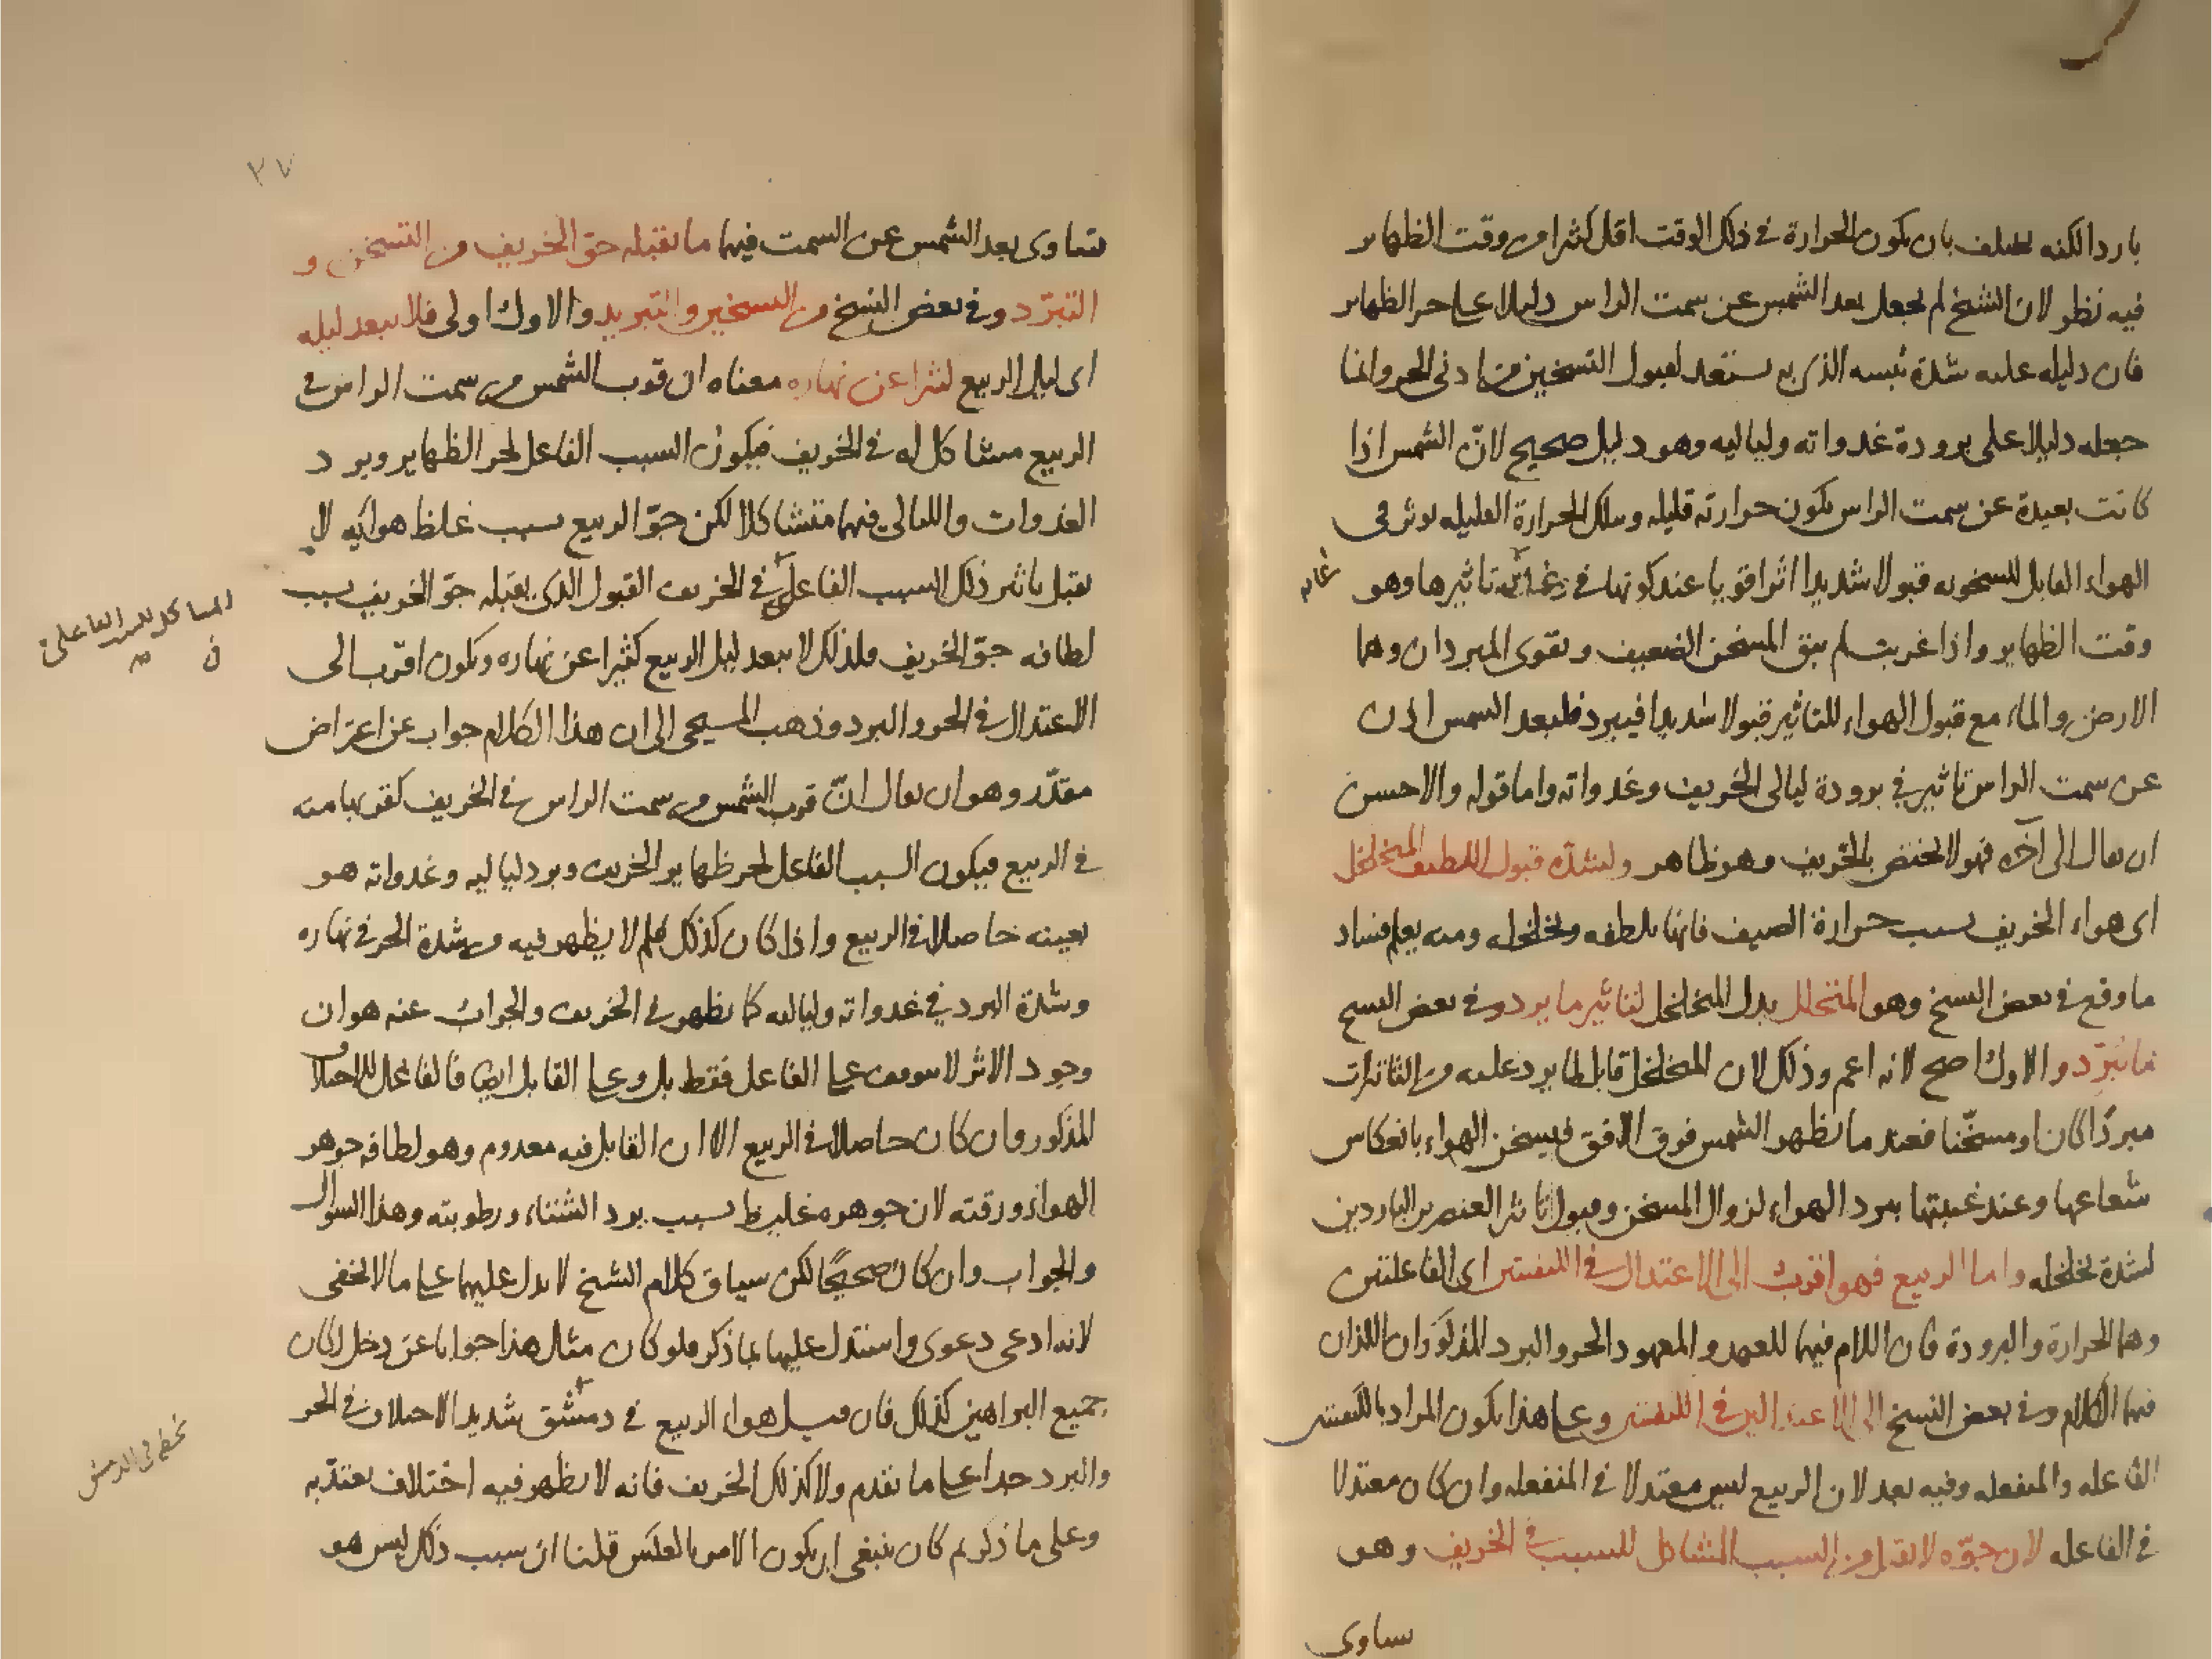 باردا لكنه يختلف بان يكون الحرارة في ذلك الوقت اقل كثيرا من وقت الظهاير
فيه نظر لان الشيخ لم يجعل بعد الشمس عن سمت الراس دليلا على حر الظهاير
فان دليله عليه شدة يبسه الذى به يستعد لقبول التسخين من ادنى الحر وانما
جعله دليلا على برودة غدواته ولياليه وهو دليل صحيح لانّ الشمس اذا
كانت بعيدة عن سمت الراس يكون حرارته قليله وتلك الحرارة القليله يوثر في
الهواء القابل للسخونه قبولا شديدا اثرا قويا عند كونها في تاثيرها وهو
غاية
وقت الظهاير واذا غربت لم يبق المسخن الضعيف ويقوى المبردان وهما
الارض والماء مع قبول الهواء للتاثير قبولا شديدا فيبرد فلبعد الشمس اذن
عن سمت الراس تاثير في برودة ليالي الخريف وغدواته واما قوله والاحسن
ان يقال الى آخره فهو لا يختص بالخريف وهو ظاهر ولشدّة قبول اللطيف المتخلخل
اى هواء الخريف بسبب حرارة الصيف فانها يلطفه ويخلخله ومنه يعلم فساد
ما وقع في بعض النسخ وهو المتحلل بدل المتخلخل لتاثير ما يرد وفي بعض النسخ
ما يبرّد والاول اصح لانه اعم وذلك لان المتخلخل قابل لما يرد عليه من التاثيرات
مبردّا كان او مسخّنا فعند ما يظهر الشمس فوق الافق فيسخن الهواء بانعكاس
شعاعها وعند غيبتها يبرد الهواء لزوال المسخن وقبول تاثير العنصرين الباردين
لشدة تخلخله واما الربيع فهو اقرب الى الاعتدال في الكيفيتين اى الفاعلتين
وهما الحرارة والبرودة فان اللام فيهما للعهد والمعهود الحر والبرد المذكوران اللذان
فيهما الكلام وفي بعض النسخ الى الاعتدالين في الكيفيتين وعلى هذا يكون المراد بالكيفيتين
الفاعله والمنفعله وفيه بعد لان الربيع ليس معتدلا في المنفعله وان كان معتدلا
في الفاعله لان جوّه لا يقبل من السبب المشاكل للسبب في الخريف وهو
يساوى
٣٧
يساوى بعد الشمس عن السمت فيهما ما يقبله جوّ الخريف من التسخن و
التبرّد وفي بعض النسخ من التسخين والتبريد والاول اولى فلا يبعد ليله
اى ليل الربيع كثيرا عن نهاره معناه ان قرب الشمس من سمت الراس في
الربيع مشاكل له في الخريف فيكون السبب الفاعل لحر الظهاير وبرد
الغدوات والليالي فيهما متشاكلا لكن جوّ الربيع بسبب غلظ هوائيه لا
يقبل تاثير ذلك السبب الفاعل في الخريف القبول الذى يقبله جوّ الخريف بسبب
المشاكل للسبب الفاعلى
لطافه جوّ الخريف فلذلك لا يبعد ليل الربيع كثيرا عن نهاره ويكون اقرب الى
الاعتدال في الحر والبرد وذهب المسيحى الى ان هذا الكلام جواب عن اعتراض
مقدّر وهو ان يقال انّ قرب الشمس من سمت الراس في الخريف كقربها منه
في الربيع فيكون السبب الفاعل لحر ظهاير الخريف وبرد لياليه وغدواته هو
بعينه حاصلا في الربيع واذا كان كذلك فلم لا يظهر فيه من شدة الحر في نهاره
وشدة البرد في غدواته ولياليه كما يظهر في الخريف والجواب عنه هو ان
وجود الاثر لا يتوقف على الفاعل فقط بل وعلى القابل ايضا فالفاعل للاختلاف
المذكور وان كان حاصلا في الربيع الا ان القابل فيه معدوم وهو لطافه جوهر
الهواء ورقته لان جوهره غليظ بسبب برد الشتاء ورطوبته وهذا السوال
والجواب وان كان صحيحًا لكن سياق كلام الشيخ لا يدل عليهما على ما لا يخفى
لانه ادعى دعوى واستدل عليها بما ذكر فلو كان مثل هذا جوابا عن دخل لكان
جميع البراهين كذلك فان قيل هواء الربيع في دمشق شديد الاختلاف في الحر
والبرد جدا على ما تقدم ولا كذلك الخريف فانه لا يظهر فيه اختلاف يعتدّ به
وعلى ما ذكرتم كان ينبغى ان يكون الامر بالعكس قلنا ان سبب ذلك ليس هو